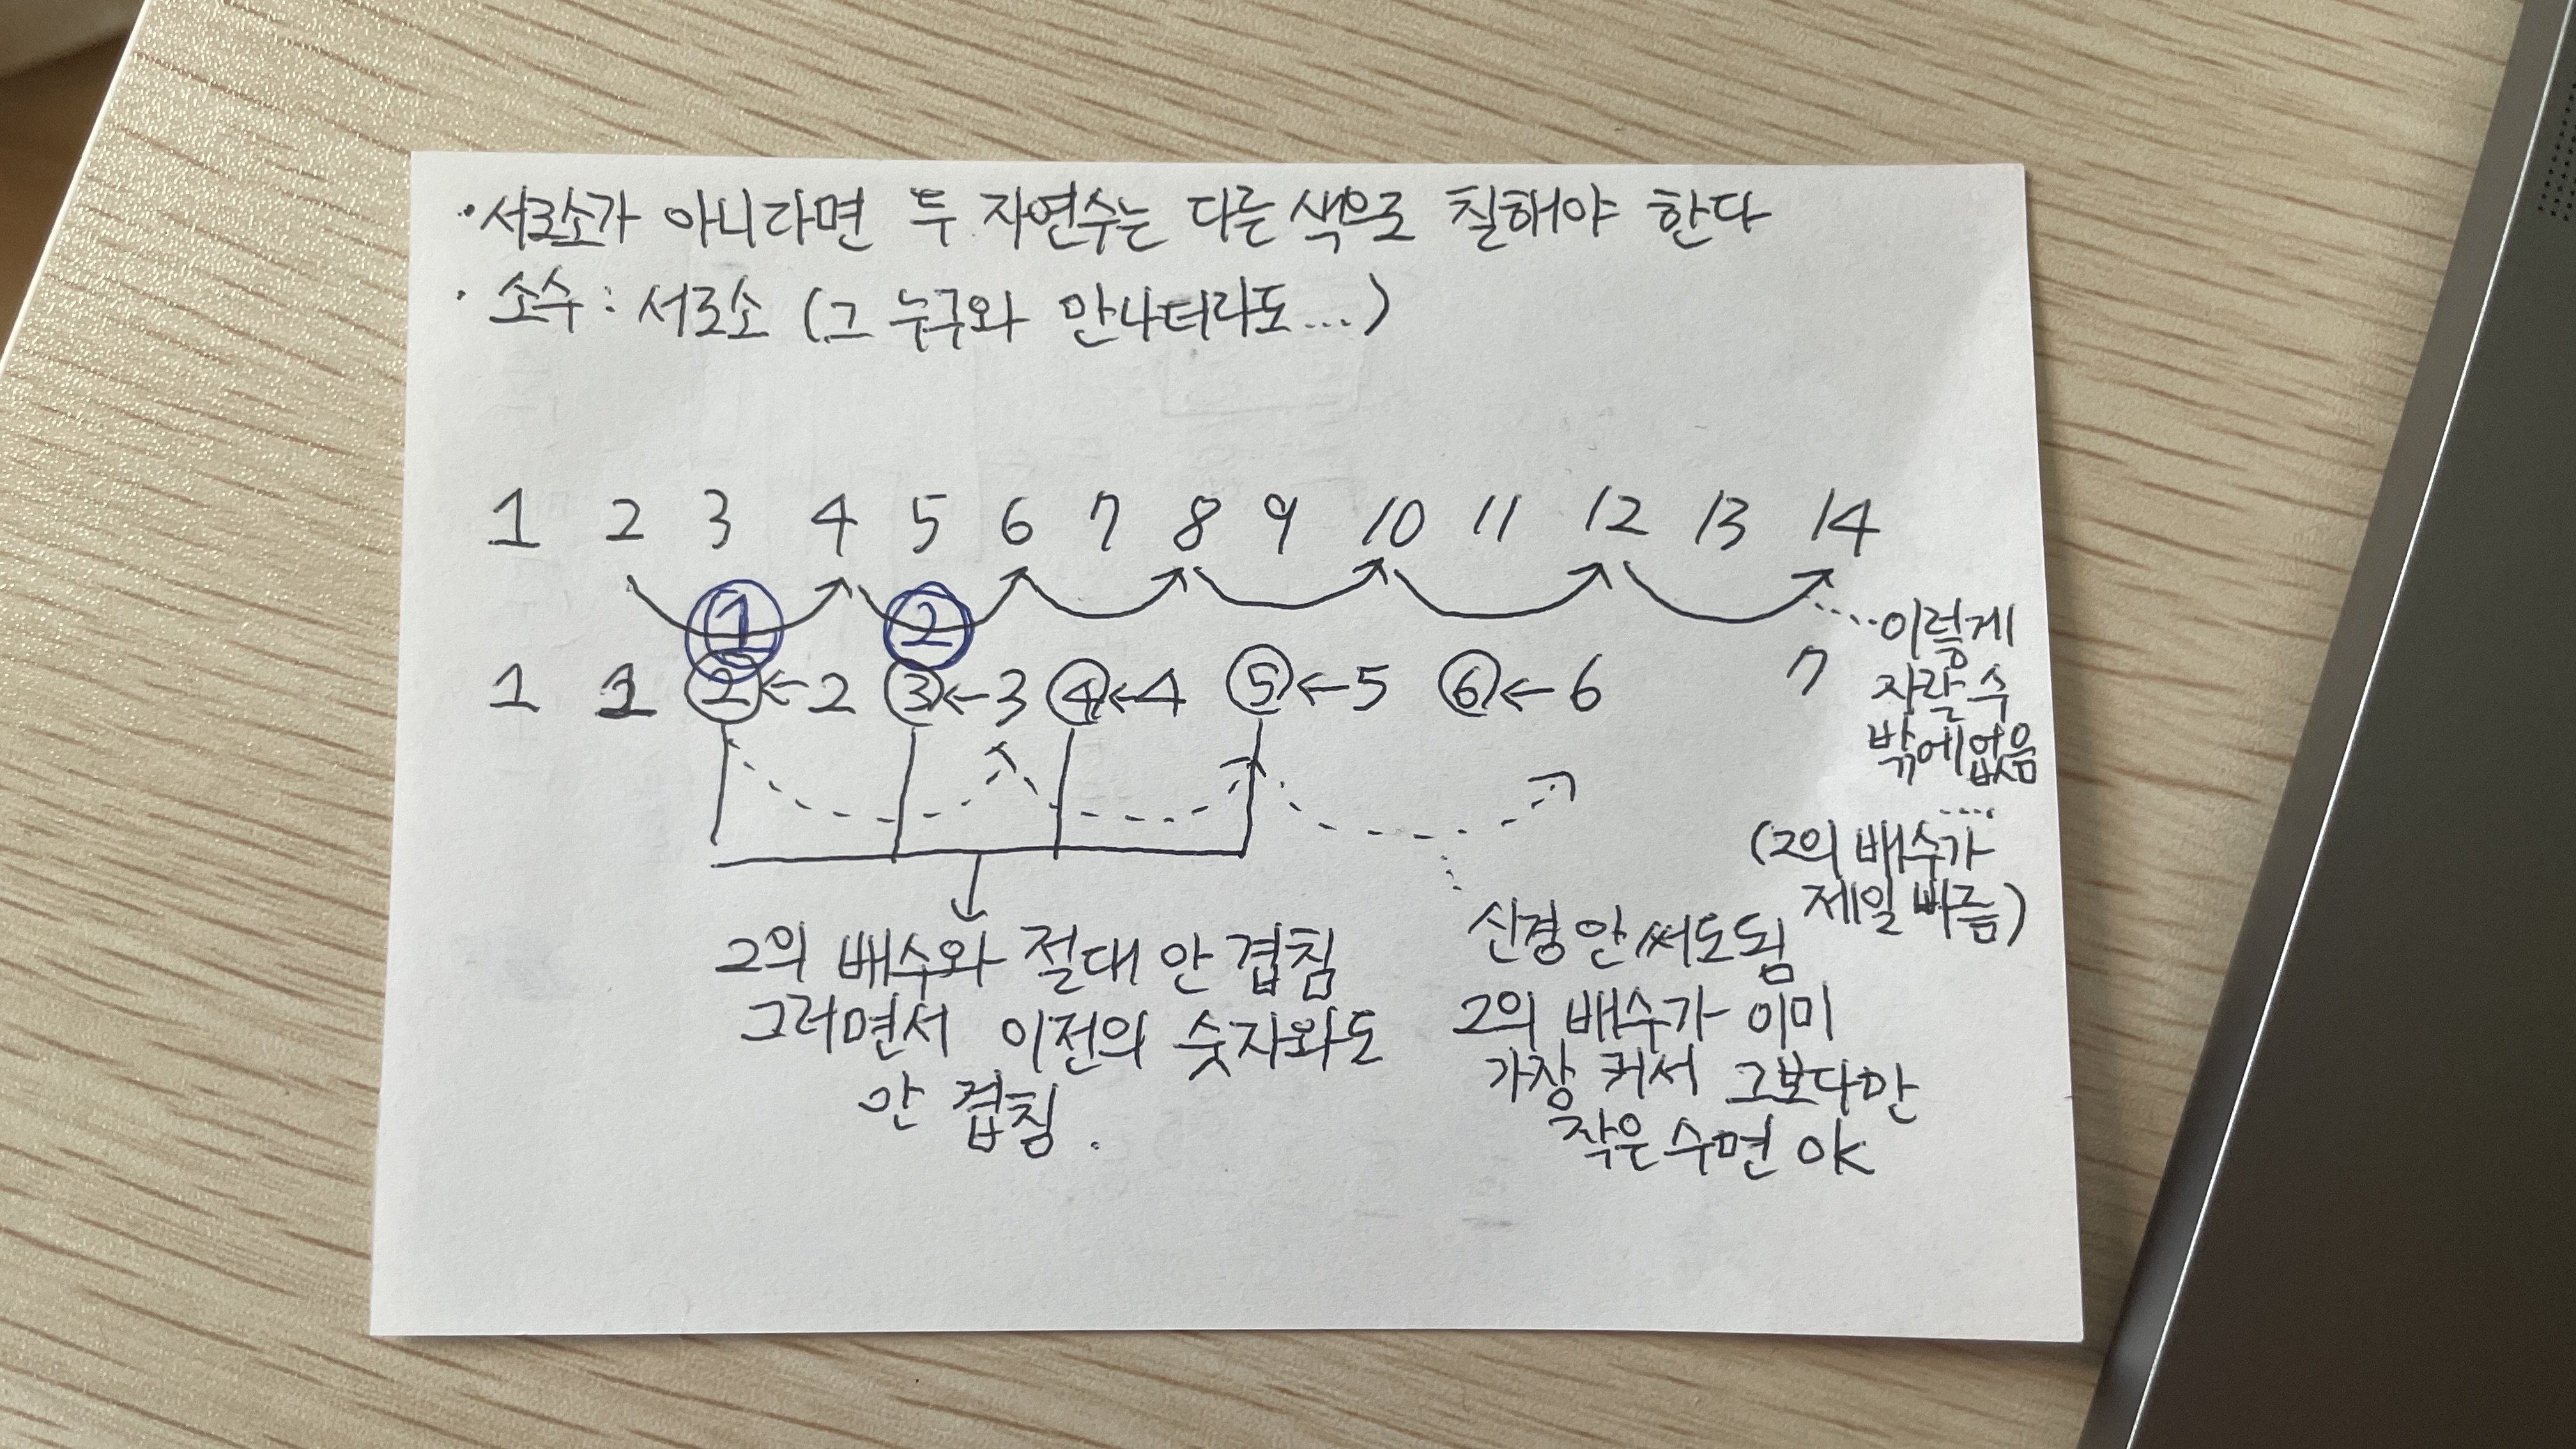 · 서로소가 아니라면 두 자연수는 다른 색으로 칠해야 한다
· 소수 : 서로소 (그 누구와 만나더라도...)
1 2 3 4 5 6 7 8 9 10 11 12 13 14
① ②
1 1 ②←2 ③←3 ④←4 ⑤←5 ⑥←6 7
...이렇게
자랄 수
밖에 없음
....
(2의 배수가
제일 빠름)
2의 배수와 절대 안 겹침
그러면서 이전의 숫자와도
안 겹침.
신경 안 써도 됨
2의 배수가 이미
가장 커서 그보다만
작은 수면 OK